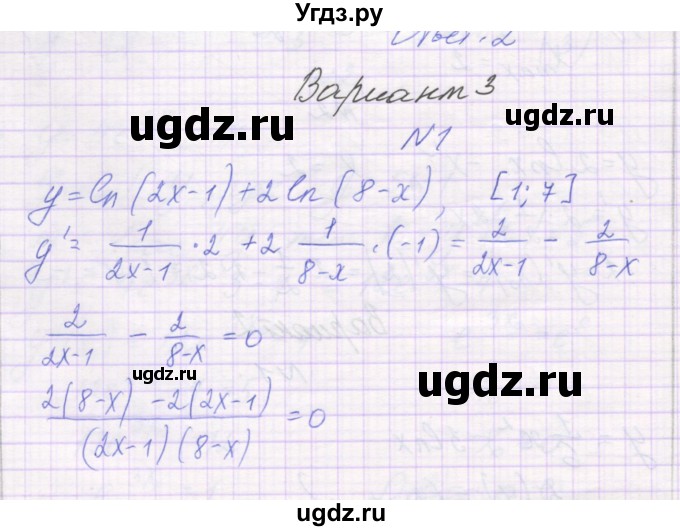 Угдз.ру
Ответ: 2
Вариант 3
ugdz.ru ugdz.ru
N1
y = ln(2x-1) + 2 ln(8-x), [1; 7]
y' = 1/(2x-1) · 2 + 2 1/(8-x) · (-1) = 2/(2x-1) - 2/(8-x)
2/(2x-1) - 2/(8-x) = 0
ugdz.ru ugdz.ru
(2(8-x) - 2(2x-1))/((2x-1)(8-x)) = 0
ugdz.ru